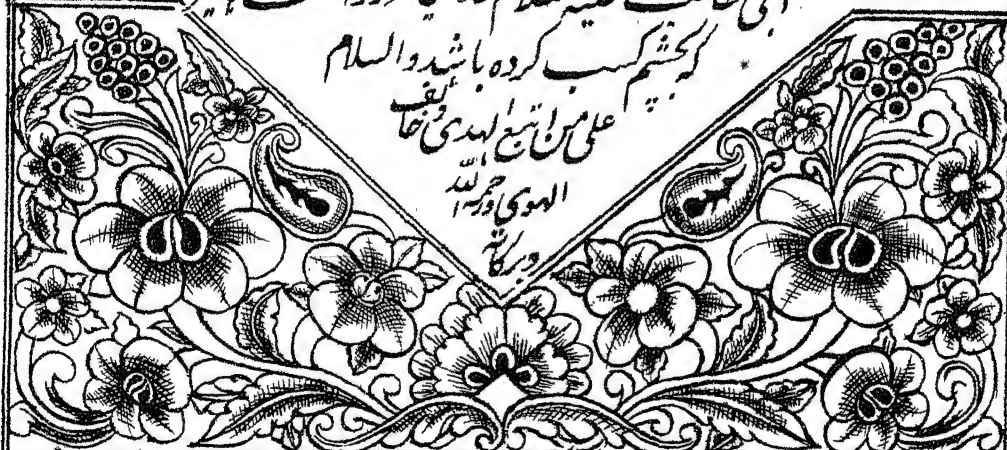 که بچشم کسب کرده باشد والسلام
علی من اتبع الهدی و خالف
الهوی ورحمة الله
وبرکاته